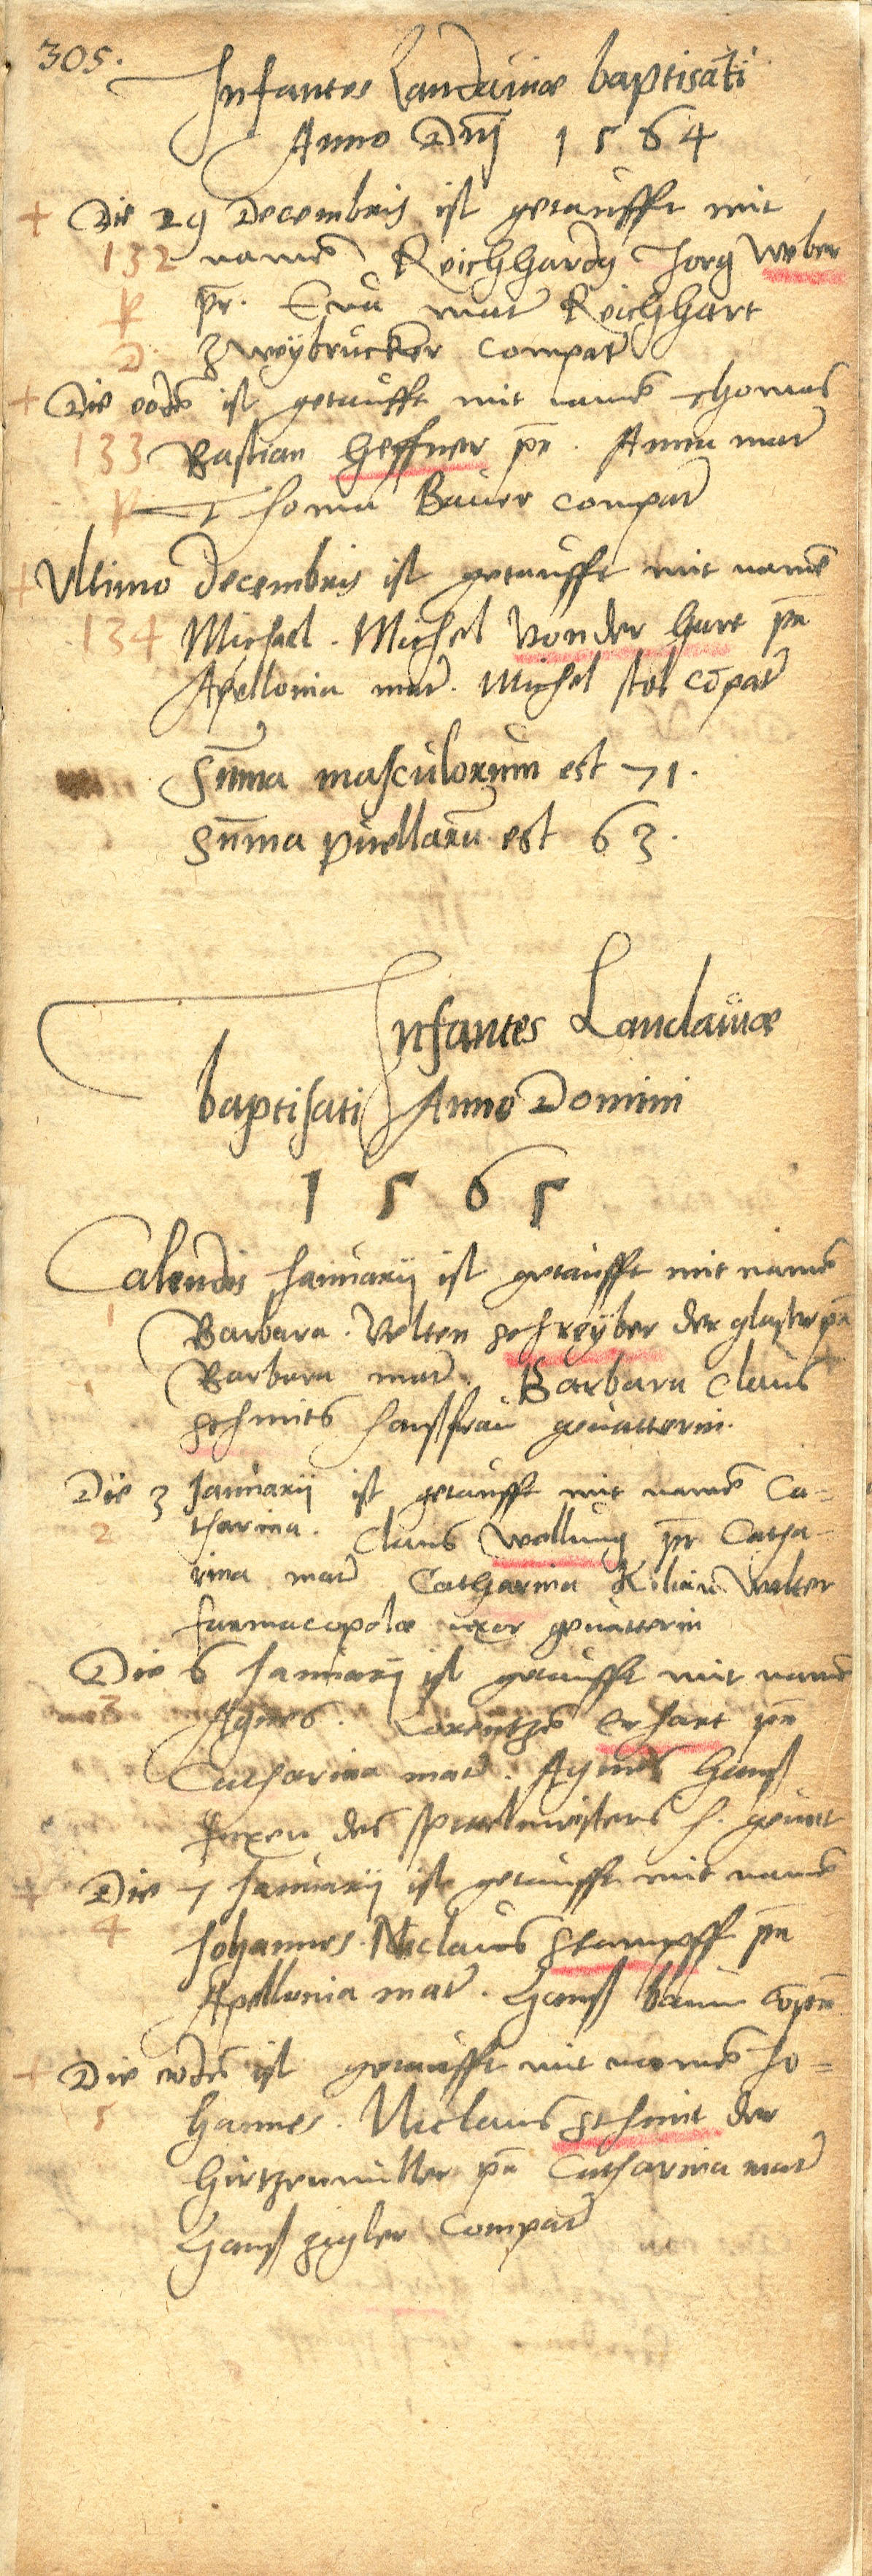 305.
Infantes Landauiæ baptisati
Anno Dnj 1564
+ Die 29 Decembris ist getaufft mit
132 namē Reichhardg Jorg Weber
p pr. Eua mat Reichhart
D. Zweybrucker compat
+ Die eodē ist getaufft mit namē Thomas
133 Bastian Heffner pr. Anna mat
p Thoma Bauer compat
+ Vltimo Decembris ist getaufft mit namē
134 Michael. Michel von der Hart pr
Apellonia mat. Michel stol cōpat
Sum̄a masculorum est 71.
Sum̄a puellarū est 63.
Infantes Landauiæ
baptisati Anno Domini
1565
Calendis Januarij ist getaufft mit namē
1 Barbara. Velten schreyber der glaser pr
Barbara mat. Barbara Claus
schmits haußfrau geuatterin.
Die 3 Januarij ist getaufft mit namē Ca=
2 tharina. Claus Wollung pr Catha-
rina mat Catharina Kilian Welter
farmacopolæ uxor geuatterin
Die 6 Januarij ist getaufft mit namē
3 Agnes. Lorentzen Erhart pr
Catharina mat. Agnes Hanß
des spitelmeisters h. geuat
+ Die 7 Januarij ist getaufft mit namē
4 Johannes. Niclaus Stampff pr
Apellonia mat. Hanß baum cōpat
+ Die eodē ist getaufft mit namē Jo=
5 hannes. Niclaus Schmit der
Hirtzenmüller pr Catharina mat
Hanß zigler compat